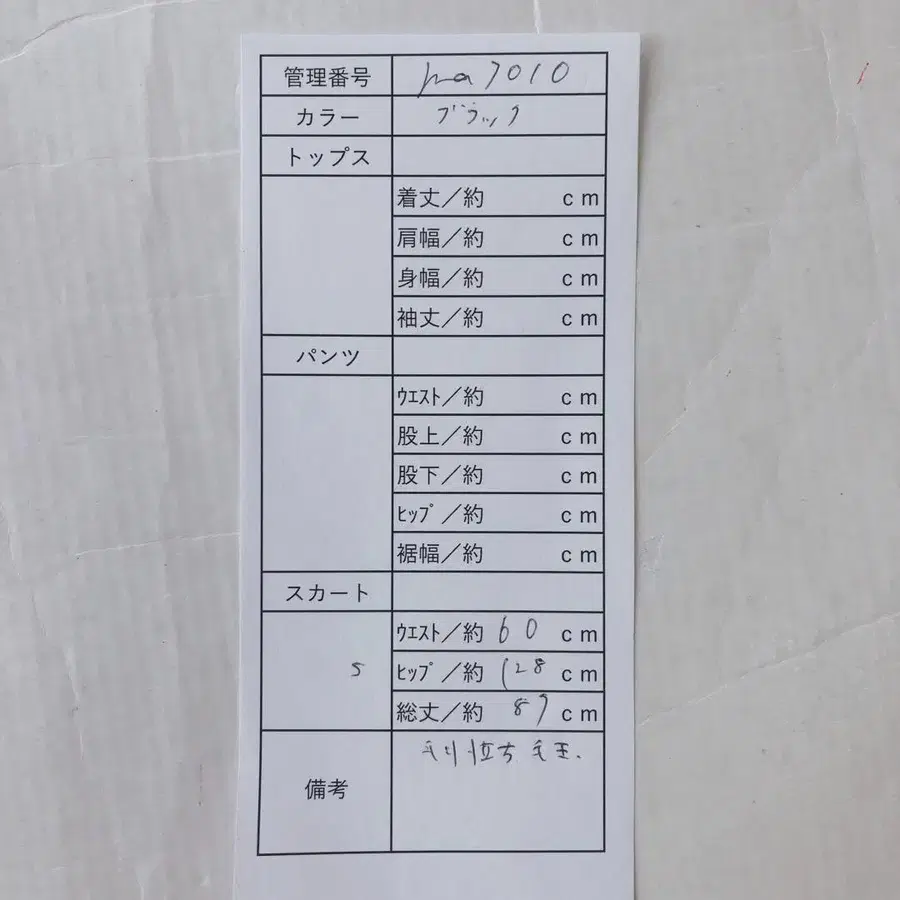 管理番号 ma7010
カラー ブラック
トップス
着丈／約 cm
肩幅／約 cm
身幅／約 cm
袖丈／約 cm
パンツ
ｳｴｽﾄ／約 cm
股上／約 cm
股下／約 cm
ﾋｯﾌﾟ／約 cm
裾幅／約 cm
スカート
ｳｴｽﾄ／約 60 cm
S ﾋｯﾌﾟ／約 128 cm
総丈／約 89 cm
備考 毛羽立ち 毛玉.